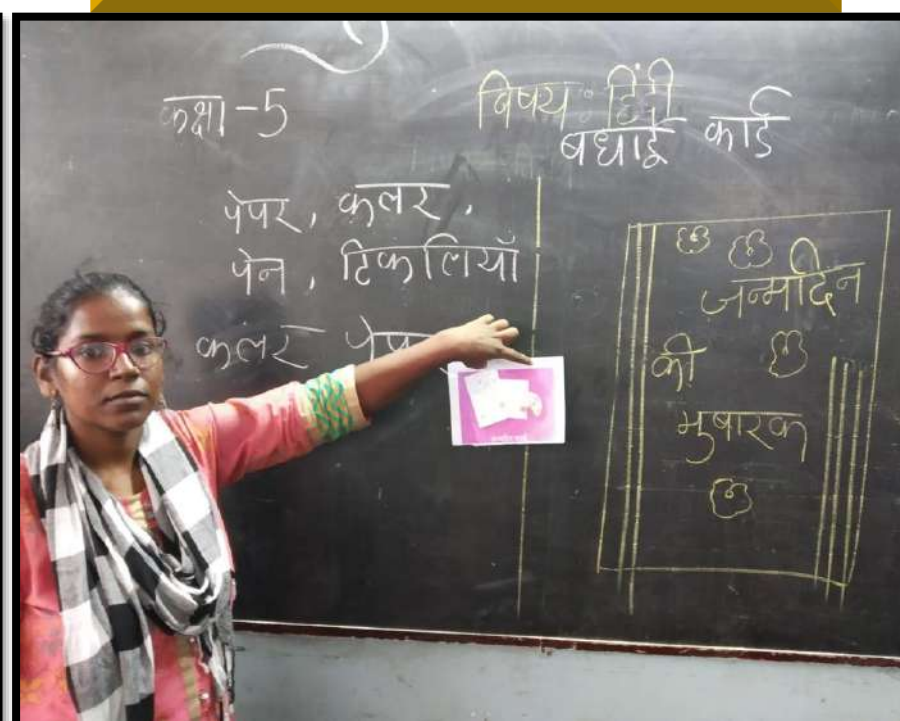 कक्षा-5
विषय: हिंदी
बधाई कार्ड
पेपर, कलर,
पेन, टिकलियाँ
कलर
जन्मदिन
की
मुबारक